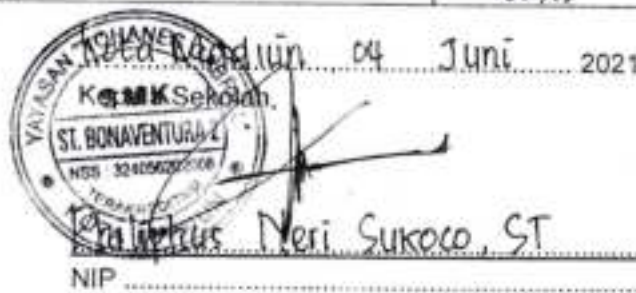 Kota Madiun 04 Juni 2021
Kepala Sekolah,
YAYASAN YOHANES
SMK
ST. BONAVENTURA
NSS : 324056202008
TERAKREDITASI
Neri Sukoco, ST
NIP